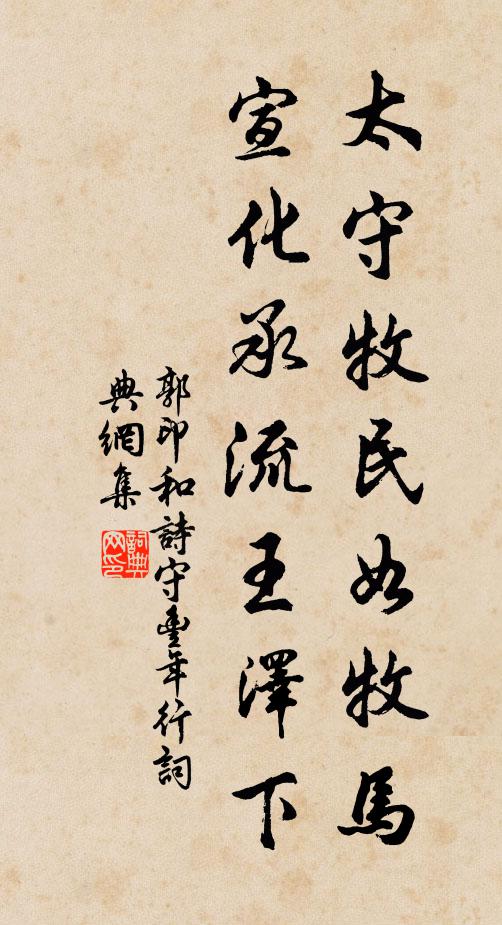 太守牧民如牧馬
宣化承流王澤下
郭印和詩守豐年行詞
典網集
詞典
网印